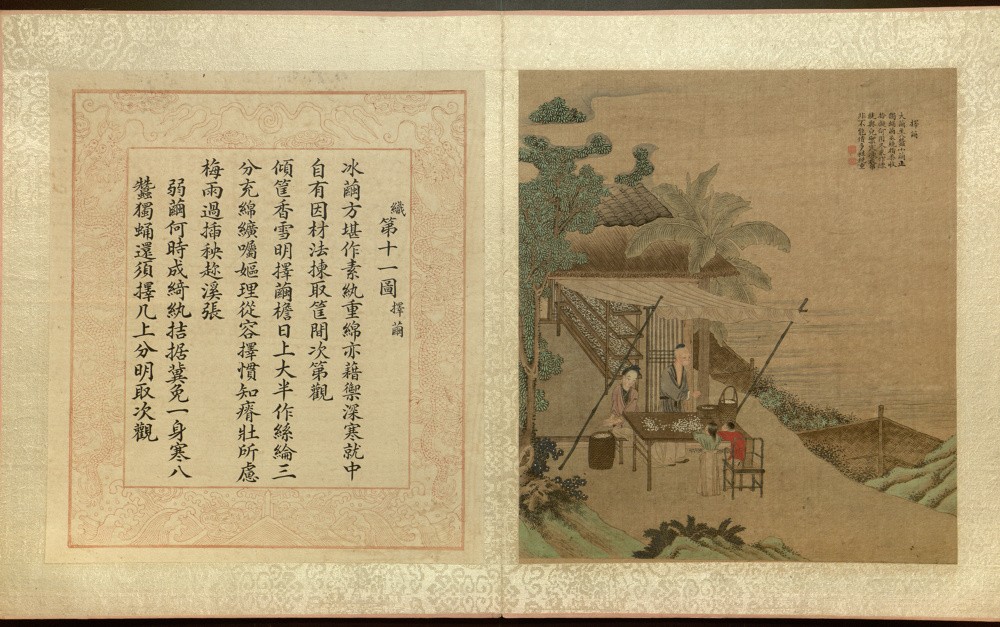 織第十一圖 擇繭
冰繭方堪作素紈重綿亦藉禦深寒就中
自有因材法揀取筐間次第觀
傾筐香雪明擇繭檐日上大半作絲綸三
分充綿纊囑嫗理從容擇慣知瘠壯所慮
梅雨過插秧趁溪張
弱繭何時成綺紈拮据冀免一身寒八
蠶獨蛹還須擇几上分明取次觀
擇繭
大繭至八蠶小繭止
獨蛹